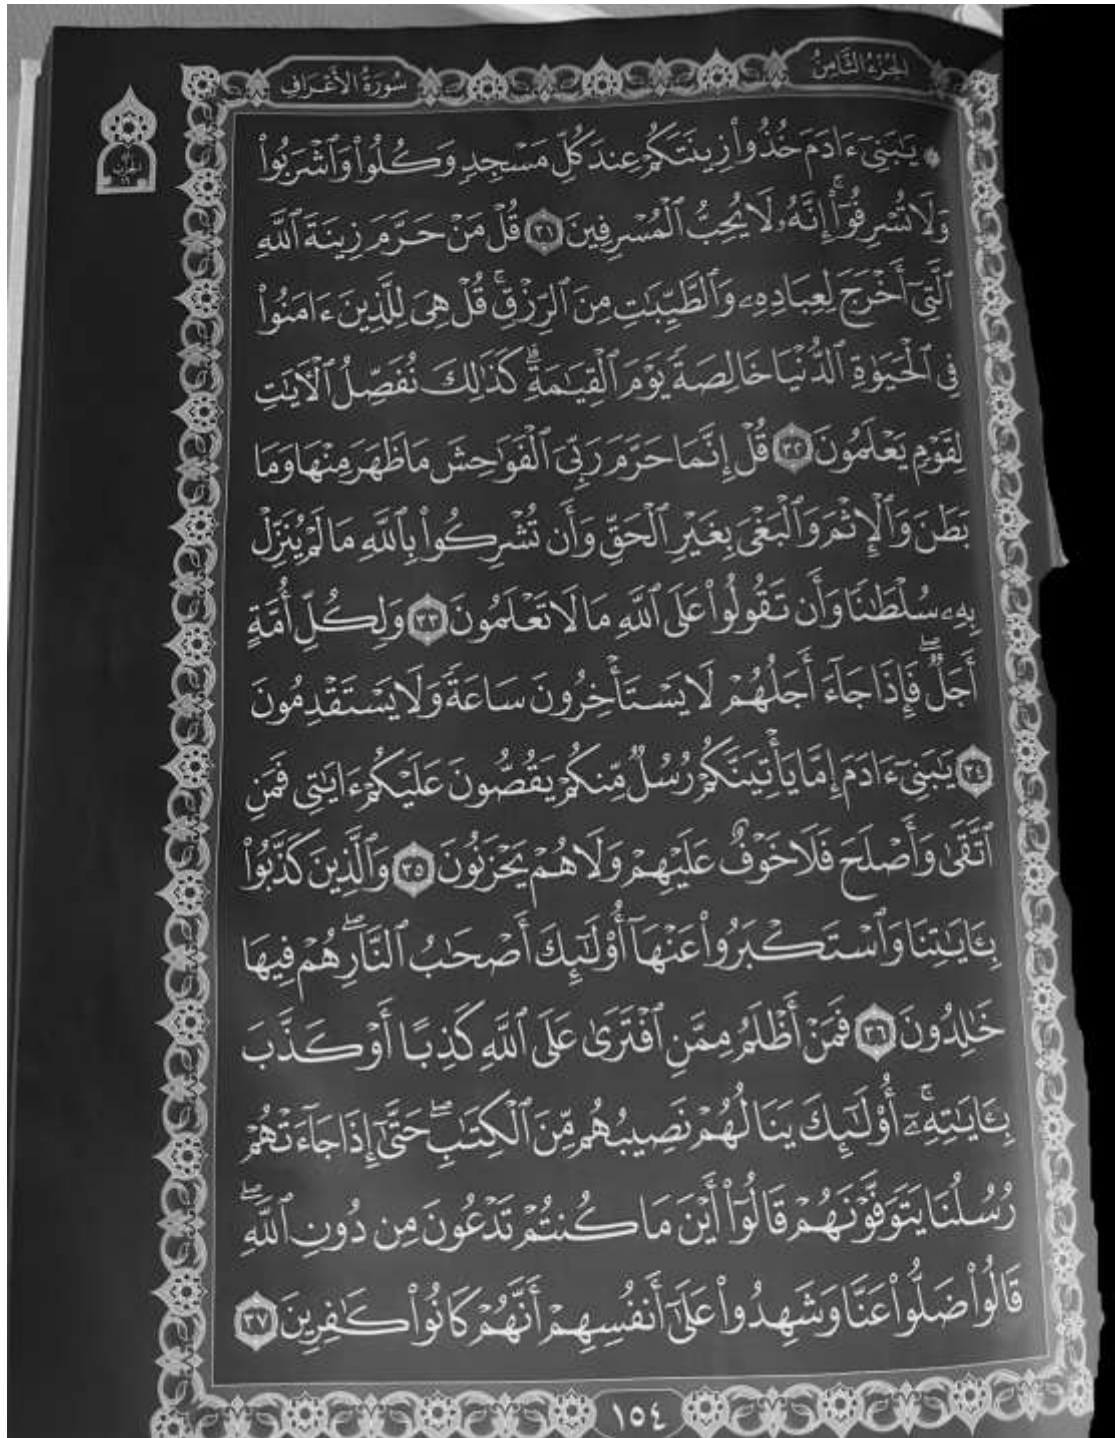 الجزء الثامن
سورة الأعراف
۞ يَٰبَنِىٓ ءَادَمَ خُذُوا۟ زِينَتَكُمْ عِندَ كُلِّ مَسْجِدٍ وَكُلُوا۟ وَٱشْرَبُوا۟
وَلَا تُسْرِفُوٓا۟ ۚ إِنَّهُۥ لَا يُحِبُّ ٱلْمُسْرِفِينَ ٣١ قُلْ مَنْ حَرَّمَ زِينَةَ ٱللَّهِ
ٱلَّتِىٓ أَخْرَجَ لِعِبَادِهِۦ وَٱلطَّيِّبَٰتِ مِنَ ٱلرِّزْقِ ۚ قُلْ هِىَ لِلَّذِينَ ءَامَنُوا۟
فِى ٱلْحَيَوٰةِ ٱلدُّنْيَا خَالِصَةً يَوْمَ ٱلْقِيَٰمَةِ ۗ كَذَٰلِكَ نُفَصِّلُ ٱلْءَايَٰتِ
لِقَوْمٍ يَعْلَمُونَ ٣٢ قُلْ إِنَّمَا حَرَّمَ رَبِّىَ ٱلْفَوَٰحِشَ مَا ظَهَرَ مِنْهَا وَمَا
بَطَنَ وَٱلْإِثْمَ وَٱلْبَغْىَ بِغَيْرِ ٱلْحَقِّ وَأَن تُشْرِكُوا۟ بِٱللَّهِ مَا لَمْ يُنَزِّلْ
بِهِۦ سُلْطَٰنًا وَأَن تَقُولُوا۟ عَلَى ٱللَّهِ مَا لَا تَعْلَمُونَ ٣٣ وَلِكُلِّ أُمَّةٍ
أَجَلٌ ۖ فَإِذَا جَآءَ أَجَلُهُمْ لَا يَسْتَأْخِرُونَ سَاعَةً وَلَا يَسْتَقْدِمُونَ
٣٤ يَٰبَنِىٓ ءَادَمَ إِمَّا يَأْتِيَنَّكُمْ رُسُلٌ مِّنكُمْ يَقُصُّونَ عَلَيْكُمْ ءَايَٰتِى فَمَنِ
ٱتَّقَىٰ وَأَصْلَحَ فَلَا خَوْفٌ عَلَيْهِمْ وَلَا هُمْ يَحْزَنُونَ ٣٥ وَٱلَّذِينَ كَذَّبُوا۟
بِـَٔايَٰتِنَا وَٱسْتَكْبَرُوا۟ عَنْهَآ أُو۟لَٰٓئِكَ أَصْحَٰبُ ٱلنَّارِ ۖ هُمْ فِيهَا
خَٰلِدُونَ ٣٦ فَمَنْ أَظْلَمُ مِمَّنِ ٱفْتَرَىٰ عَلَى ٱللَّهِ كَذِبًا أَوْ كَذَّبَ
بِـَٔايَٰتِهِۦٓ ۚ أُو۟لَٰٓئِكَ يَنَالُهُمْ نَصِيبُهُم مِّنَ ٱلْكِتَٰبِ ۖ حَتَّىٰٓ إِذَا جَآءَتْهُمْ
رُسُلُنَا يَتَوَفَّوْنَهُمْ قَالُوٓا۟ أَيْنَ مَا كُنتُمْ تَدْعُونَ مِن دُونِ ٱللَّهِ ۖ
قَالُوا۟ ضَلُّوا۟ عَنَّا وَشَهِدُوا۟ عَلَىٰٓ أَنفُسِهِمْ أَنَّهُمْ كَانُوا۟ كَٰفِرِينَ ٣٧
١٥٤